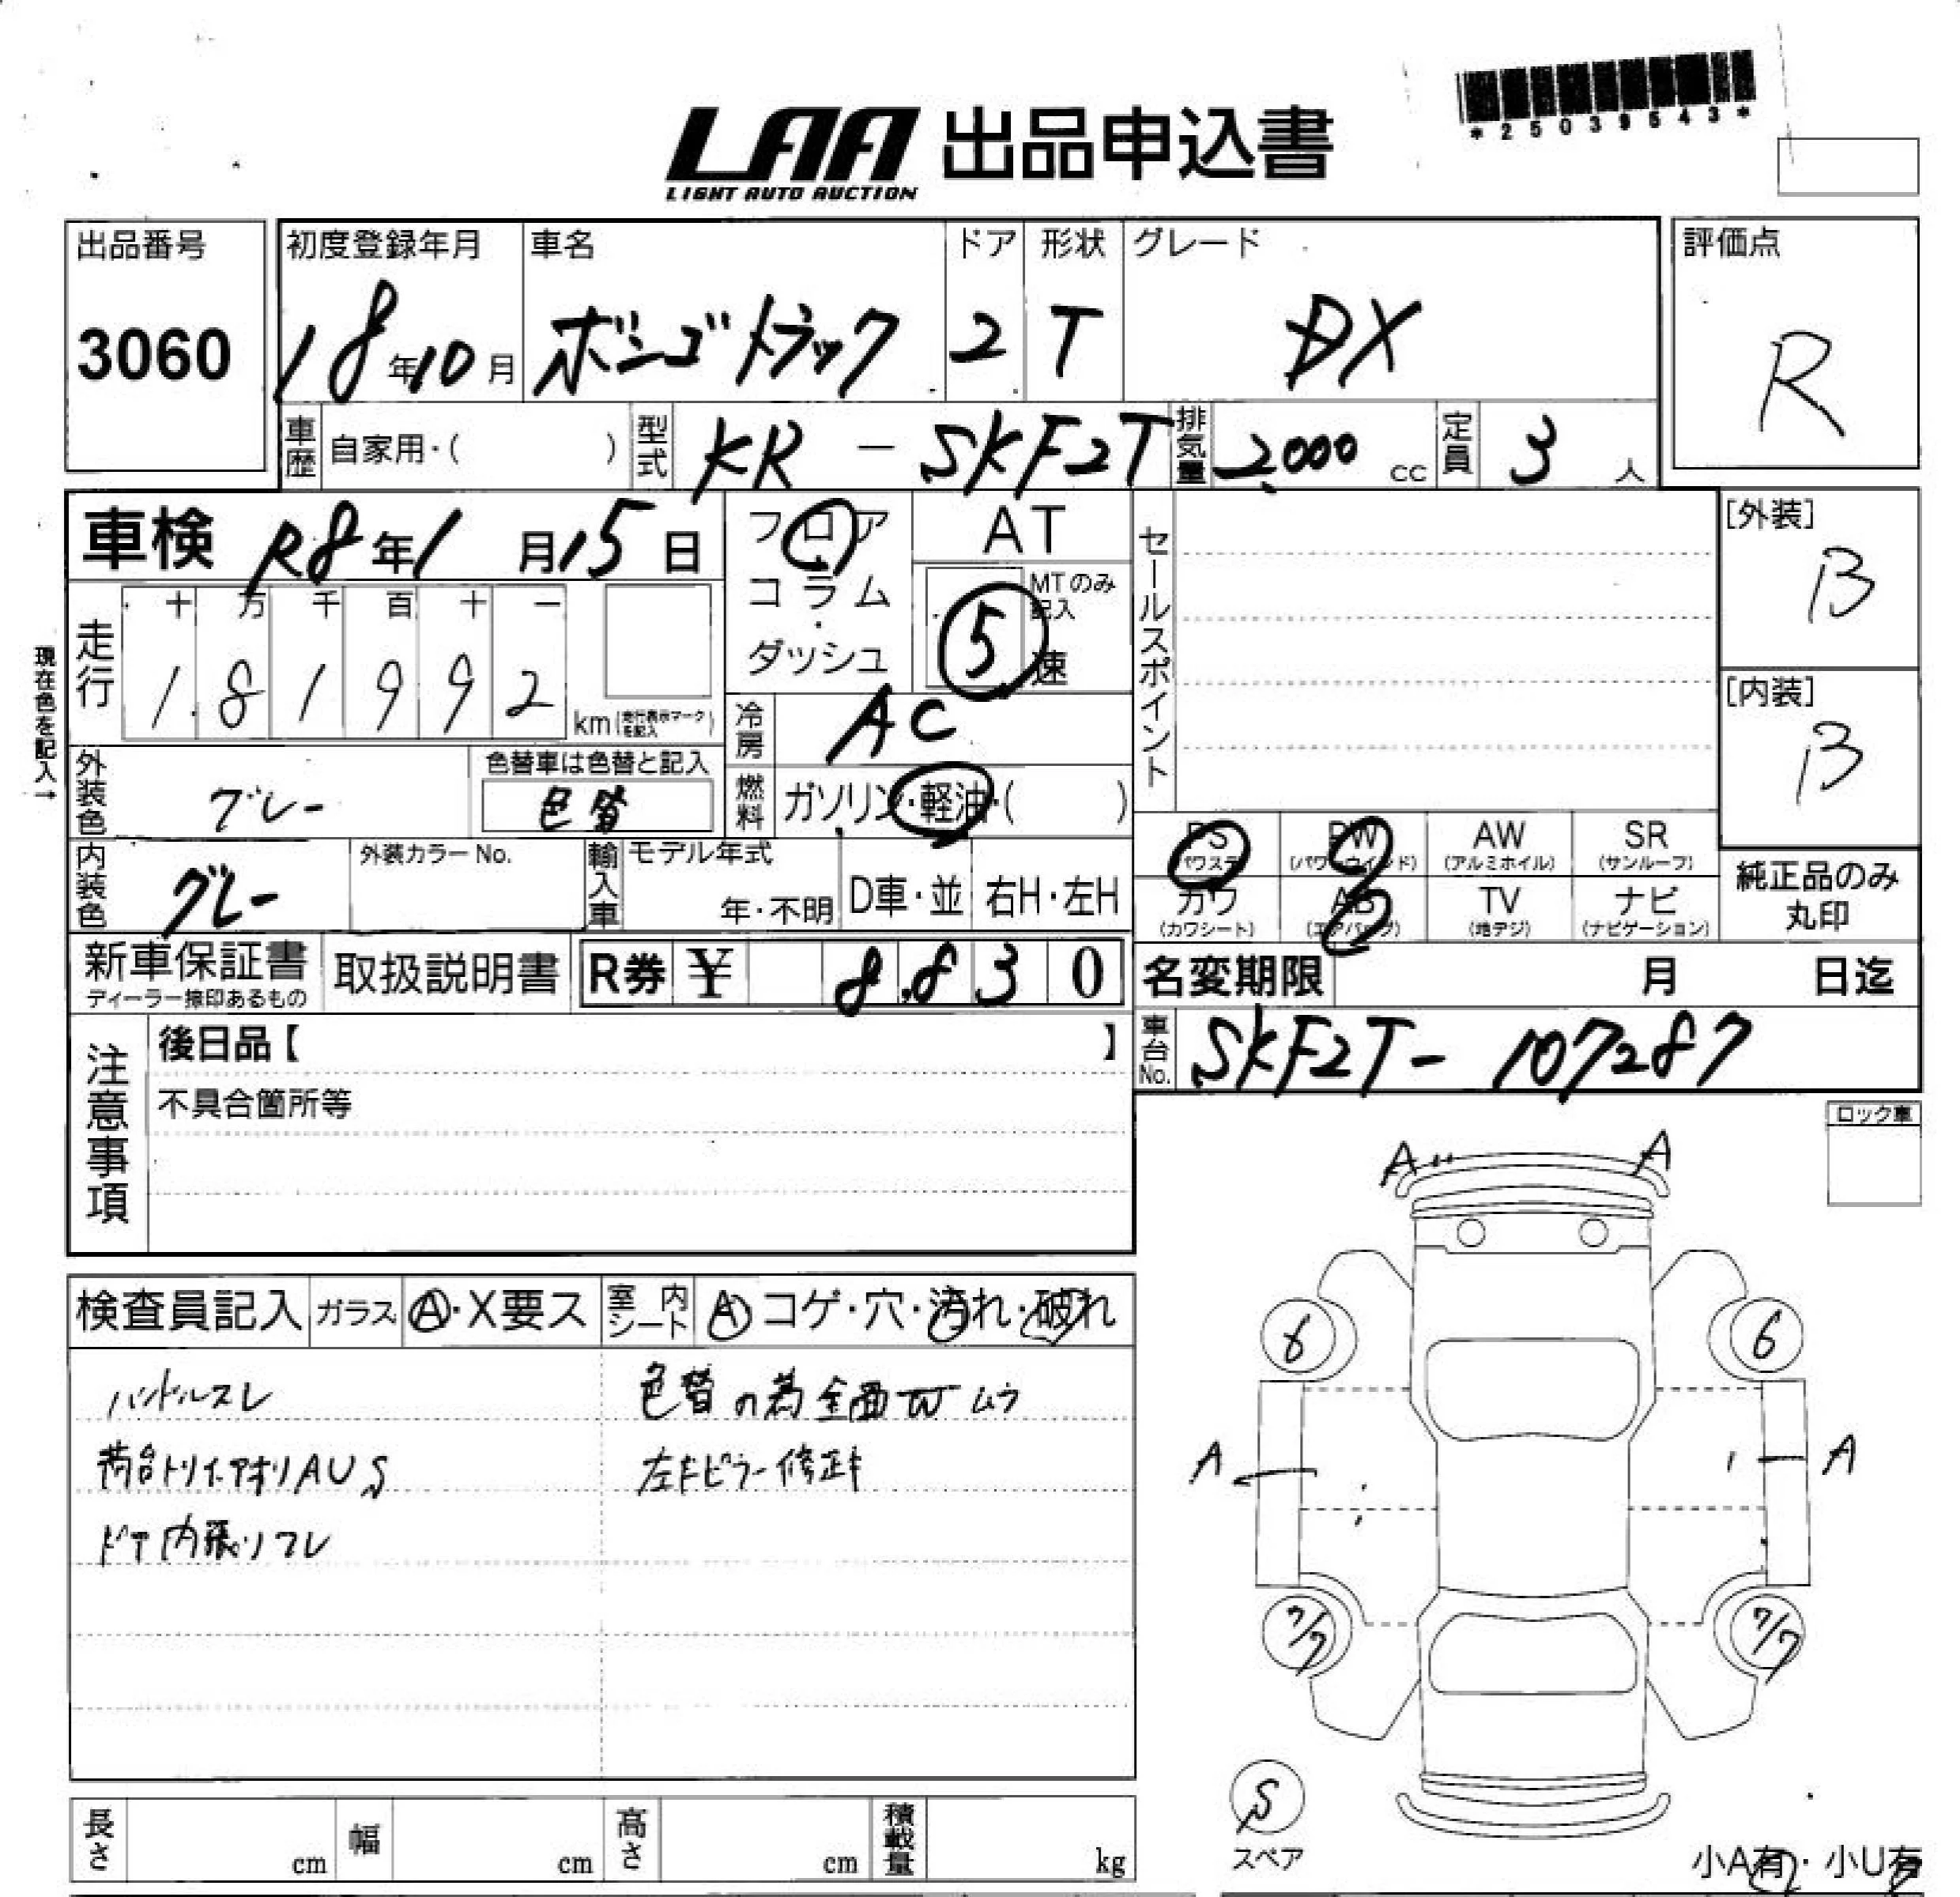 *25039543*
LAA 出品申込書
LIGHT AUTO AUCTION
出品番号 初度登録年月 車名 ドア 形状 グレード 評価点
3060 18年10月 ボンゴトラック 2 T DX R
車歴 自家用・( ) 型式 KR-SKF2T 排気量 2,000 cc 定員 3 人
車検 R8年1月15日 フロア AT セールスポイント [外装]
B
コラム・ MTのみ記入
走行 十 万 千 百 十 一 ダッシュ 5 速
現在色を記入→ 1 8 1 9 9 2 km (走行表示マークを記入) [内装]
B
冷房 AC
外装色 グレー 色替車は色替と記入 色替 燃料 ガソリン・軽油・( )
PS (パワステ) PW (パワーウィンド) AW (アルミホイル) SR (サンルーフ)
内装色 グレー 外装カラーNo. 輸入車 モデル年式 年・不明 D車・並 右H・左H
カワ (カワシート) AB (エアバッグ) TV (地デジ) ナビ (ナビゲーション) 純正品のみ丸印
新車保証書 ディーラー捺印あるもの 取扱説明書 R券 ¥ 8,830 名変期限 月 日迄
注意事項 後日品【 】 車台No. SKF2T-107287
不具合箇所等
ロック車
A" A
検査員記入 ガラス A・X要ス 室内シート A コゲ・穴・汚れ・破れ
6 6
ハンドルスレ 色替の為全面Wムラ
荷台トリイ・アオリAUS 左Fピラー修正キ
A A
ドア内張リスレ
7/7 7/7
S
スペア
長さ cm 幅 cm 高さ cm 積載量 kg
小A有・小U有